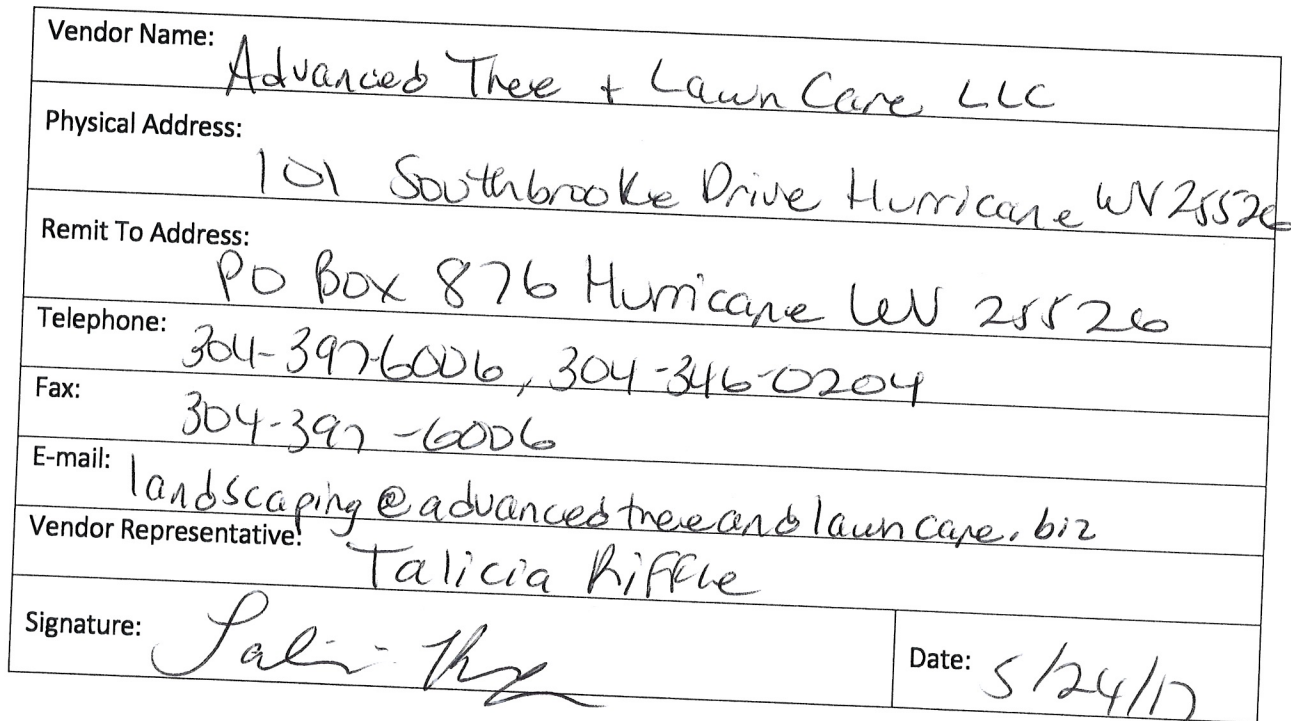 Vendor Name: Advanced Tree + Lawn Care LLC
Physical Address: 101 Southbrooke Drive Hurricane WV 25526
Remit To Address: PO Box 876 Hurricane WV 25526
Telephone: 304-397-6006, 304-346-0204
Fax: 304-397-6006
E-mail: landscaping@advancedtreeandlawncare.biz
Vendor Representative: Talicia Riffle
Signature:
Date: 5/24/17